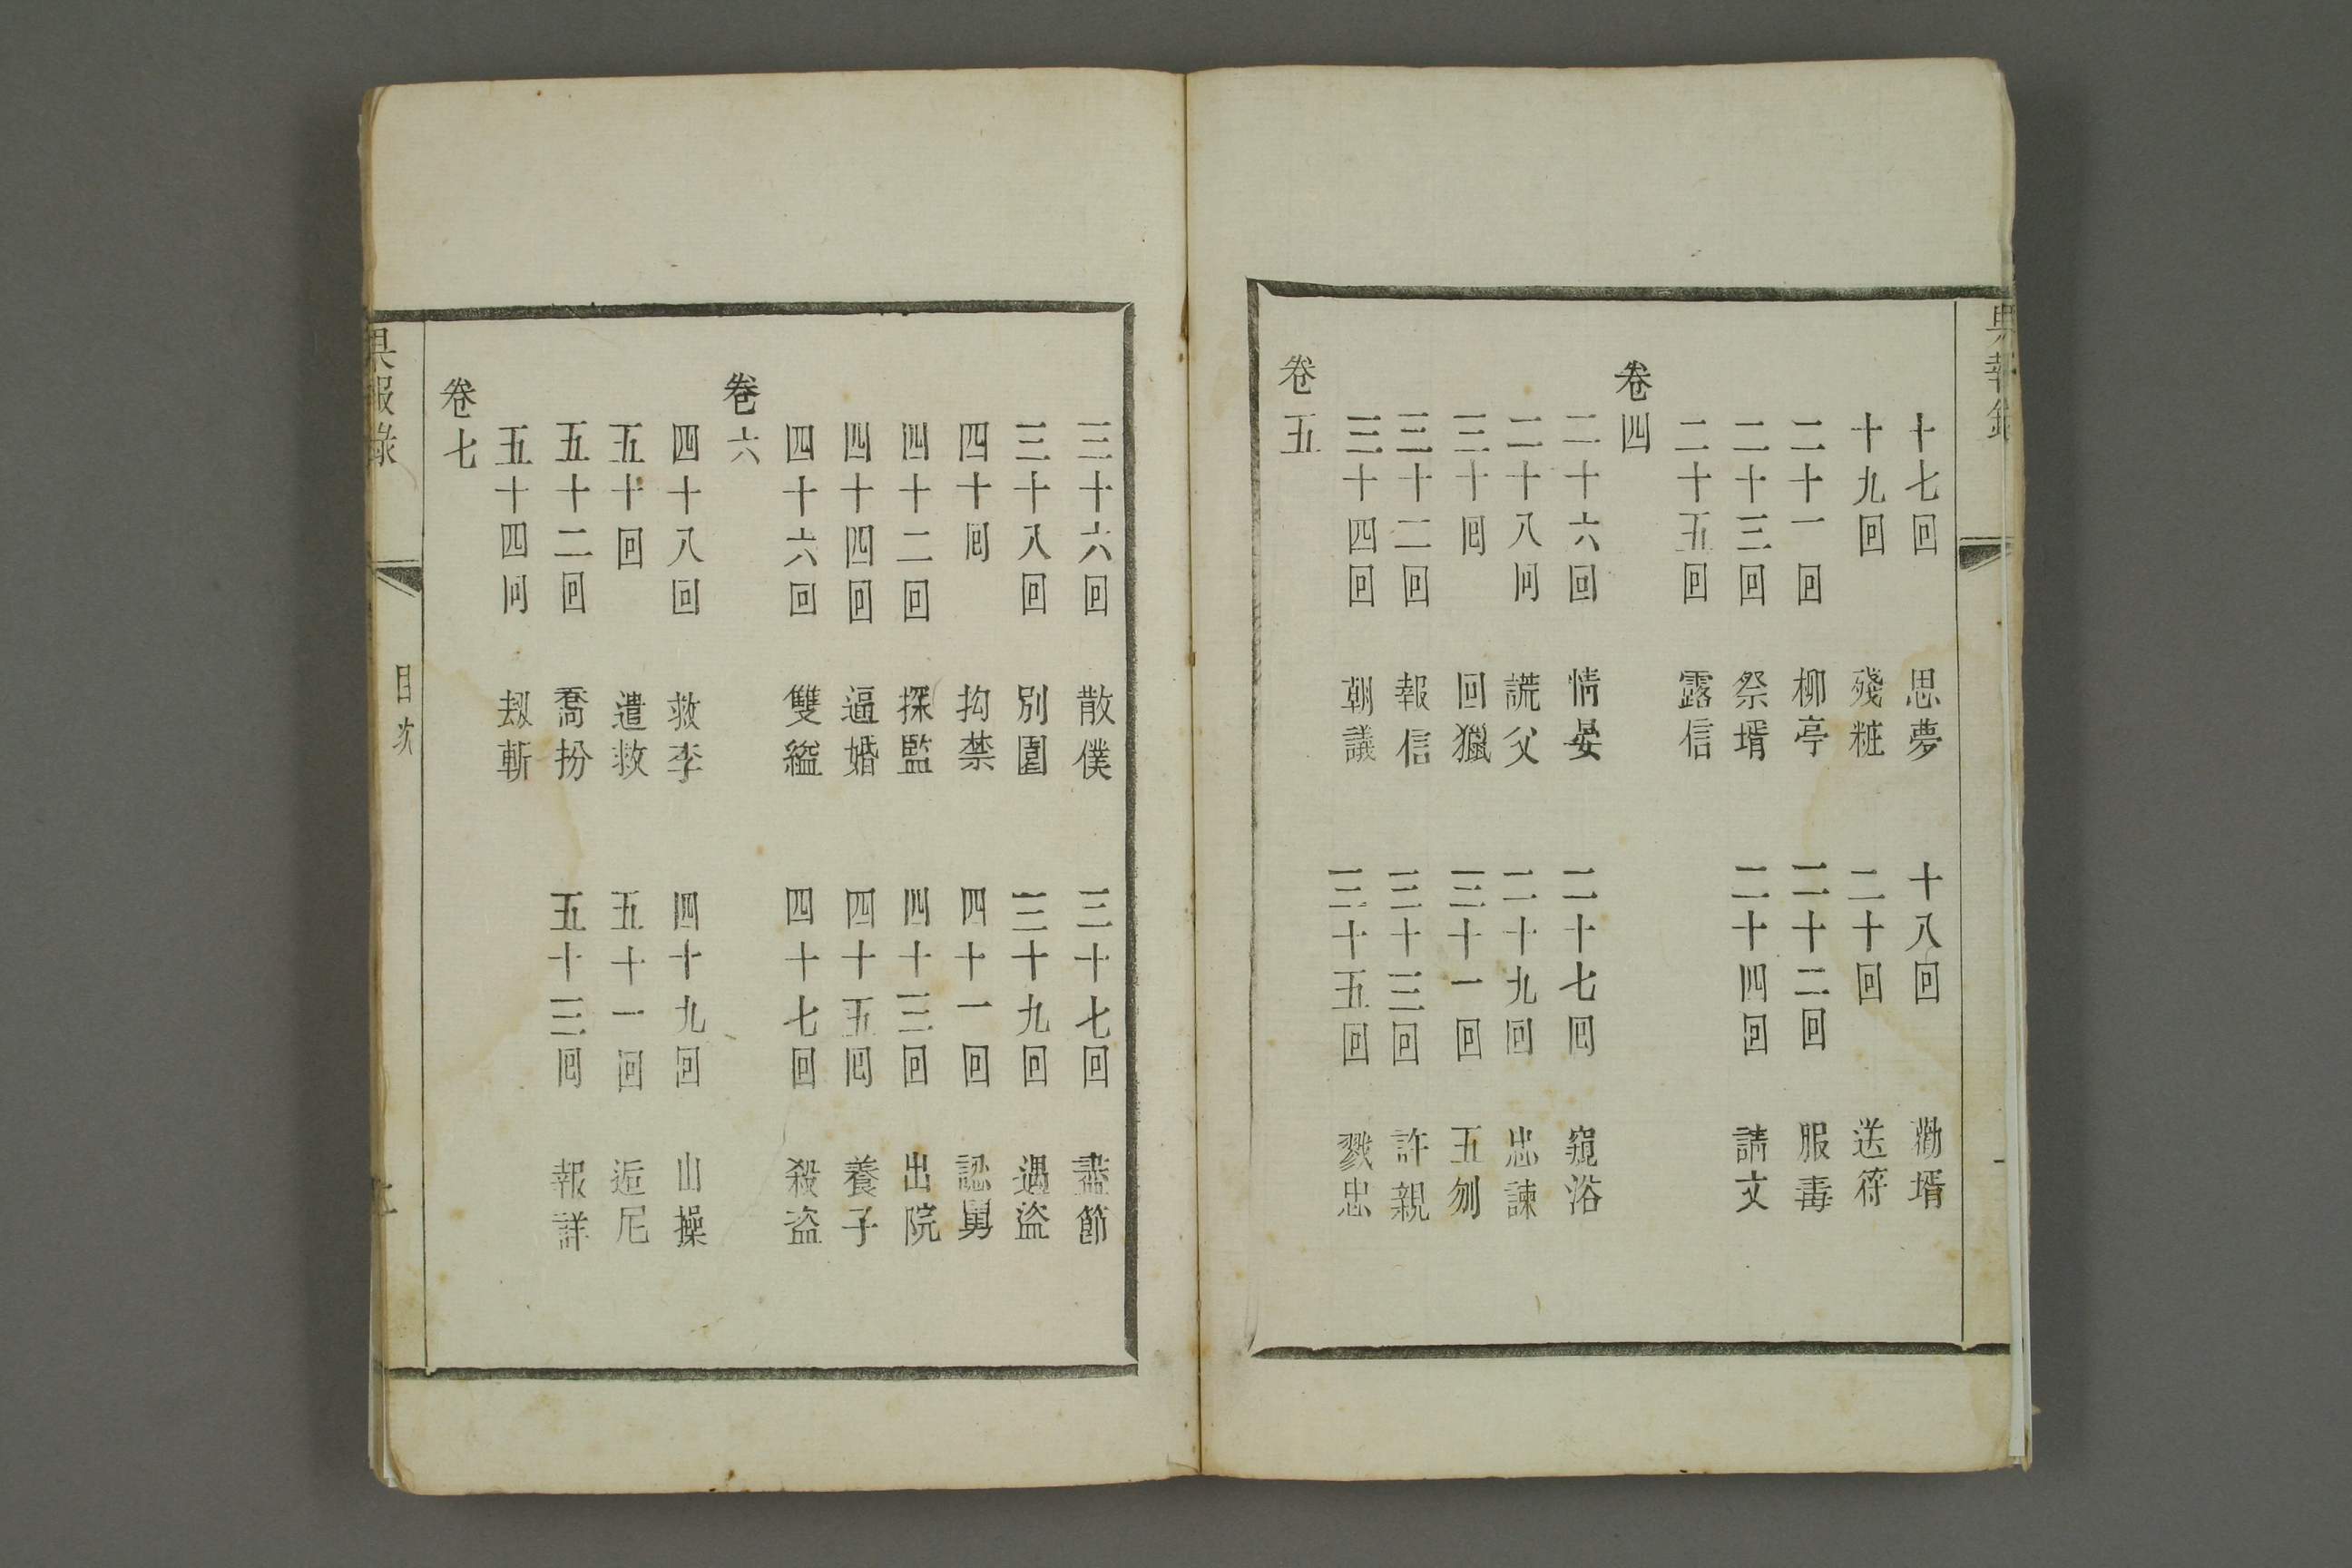 果報錄
十七回 思夢 十八回 勸壻
十九回 殘粧 二十回 送符
二十一回 柳亭 二十二回 服毒
二十三回 祭壻 二十四回 請文
二十五回 露信
卷四
二十六回 情晏 二十七回 窺浴
二十八回 謊父 二十九回 忠諫
三十回 回獵 三十一回 五刎
三十二回 報信 三十三回 許親
三十四回 朝議 三十五回 戮忠
卷五
三十六回 散僕 三十七回 盡節
三十八回 別園 三十九回 遇盜
四十回 拘禁 四十一回 認舅
四十二回 探監 四十三回 出院
四十四回 逼婚 四十五回 養子
四十六回 雙縊 四十七回 殺盜
卷六
四十八回 救李 四十九回 山操
五十回 遣救 五十一回 逅尼
五十二回 喬扮 五十三回 報詳
五十四回 刼斬
卷七
果報錄 目次